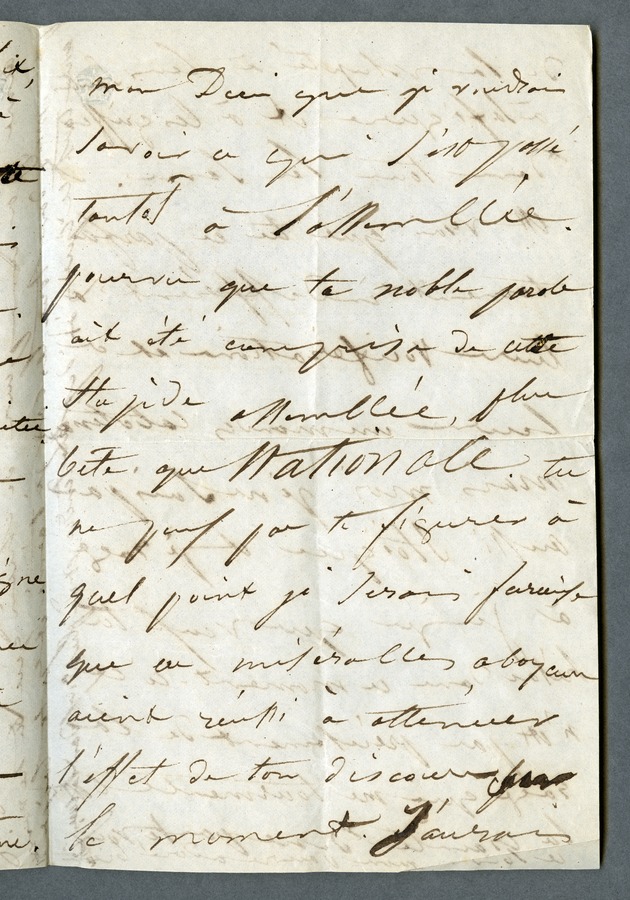 mon Dieu que je voudrais
savoir ce qui s'est passé
tantot à l'assemblée.
pourvu que ta noble parole
ait été comprise de cette
stupide assemblée, plus
bete que Nationale tu
ne peux pas te figurer à
quel point je serais furieuse
que ces misérables aboyeurs
aient réussi à attenuer
l'effet de ton discours
le moment. J'aurais